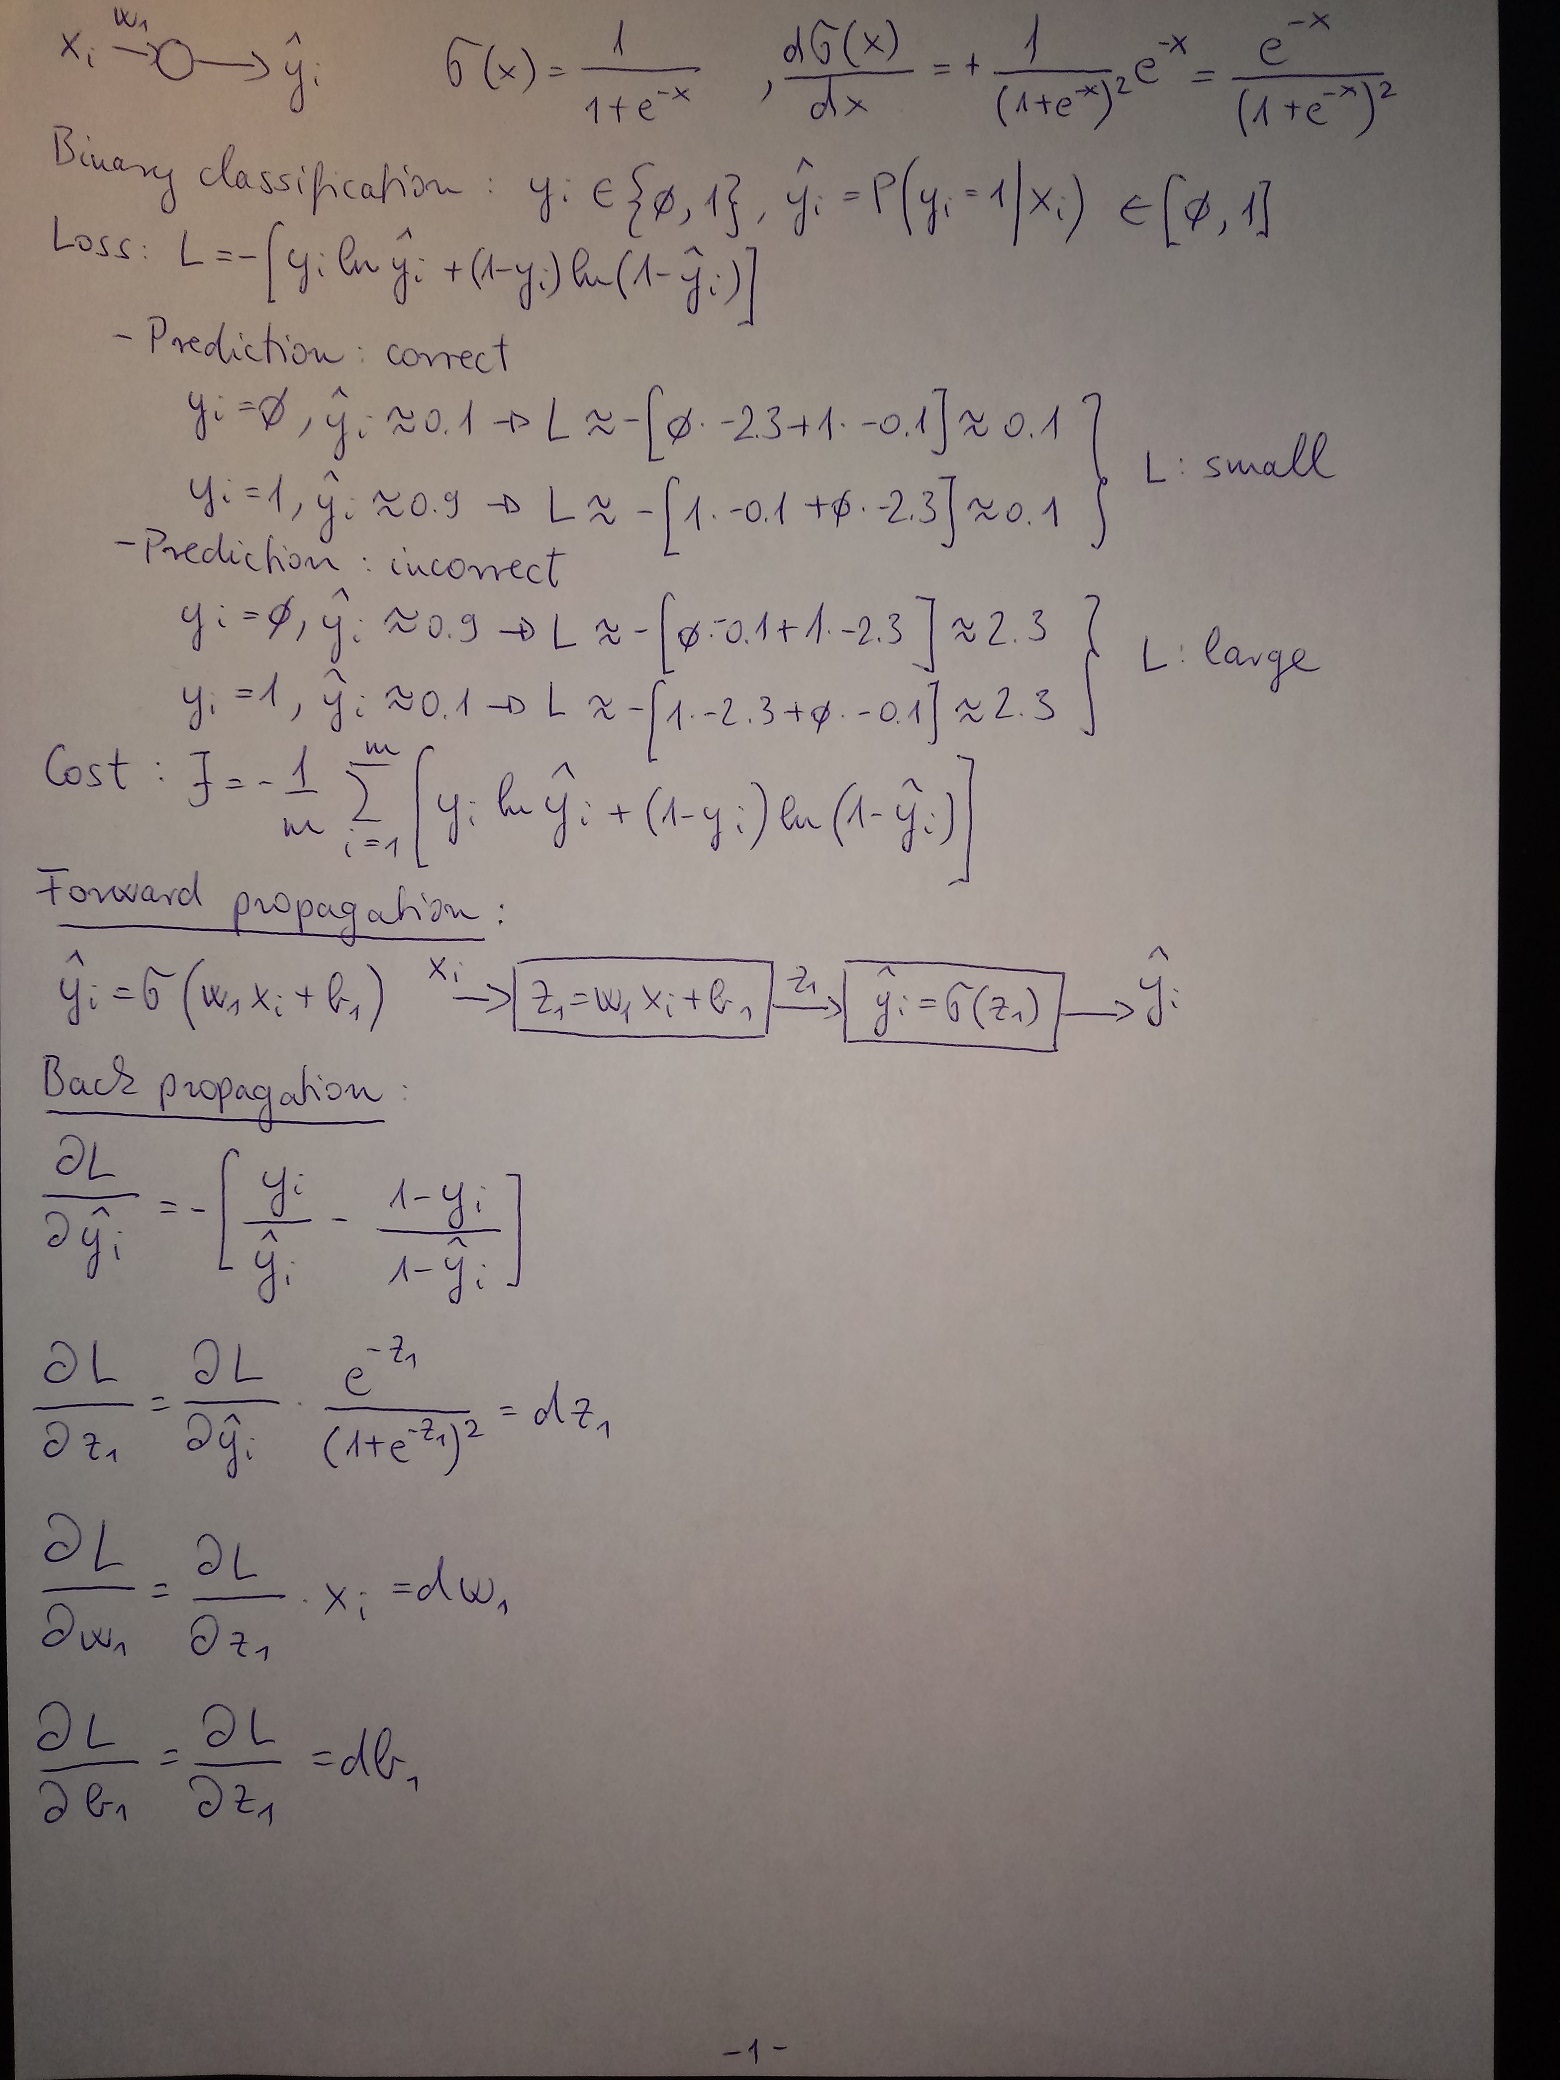 xᵢ w₁ → ○ → ŷᵢ   σ(x) = 1/(1+e^(-x)) , dσ(x)/dx = + 1/(1+e^(-x))² e^(-x) = e^(-x)/(1+e^(-x))²
Binary classification : yᵢ ∈ {∅, 1}, ŷᵢ = P(yᵢ = 1 | xᵢ) ∈ [∅, 1]
Loss: L = -[yᵢ ln ŷᵢ + (1-yᵢ) ln(1-ŷᵢ)]
- Prediction : correct
yᵢ = ∅, ŷᵢ ≈ 0.1 → L ≈ -[∅· -2.3 + 1· -0.1] ≈ 0.1
yᵢ = 1, ŷᵢ ≈ 0.9 → L ≈ -[1· -0.1 + ∅· -2.3] ≈ 0.1 } L: small
- Prediction : incorrect
yᵢ = ∅, ŷᵢ ≈ 0.9 → L ≈ -[∅· -0.1 + 1· -2.3] ≈ 2.3
yᵢ = 1, ŷᵢ ≈ 0.1 → L ≈ -[1· -2.3 + ∅· -0.1] ≈ 2.3 } L: large
Cost : J = - 1/m Σ_(i=1)^m [yᵢ ln ŷᵢ + (1-yᵢ) ln(1-ŷᵢ)]
Forward propagation :
ŷᵢ = σ(w₁xᵢ + b₁)   xᵢ → z₁ = w₁xᵢ + b₁ z₁ → ŷᵢ = σ(z₁) → ŷᵢ
Back propagation :
∂L/∂ŷᵢ = -[yᵢ/ŷᵢ - (1-yᵢ)/(1-ŷᵢ)]
∂L/∂z₁ = ∂L/∂ŷᵢ · e^(-z₁)/(1+e^(-z₁))² = dz₁
∂L/∂w₁ = ∂L/∂z₁ · xᵢ = dw₁
∂L/∂b₁ = ∂L/∂z₁ = db₁
-1-